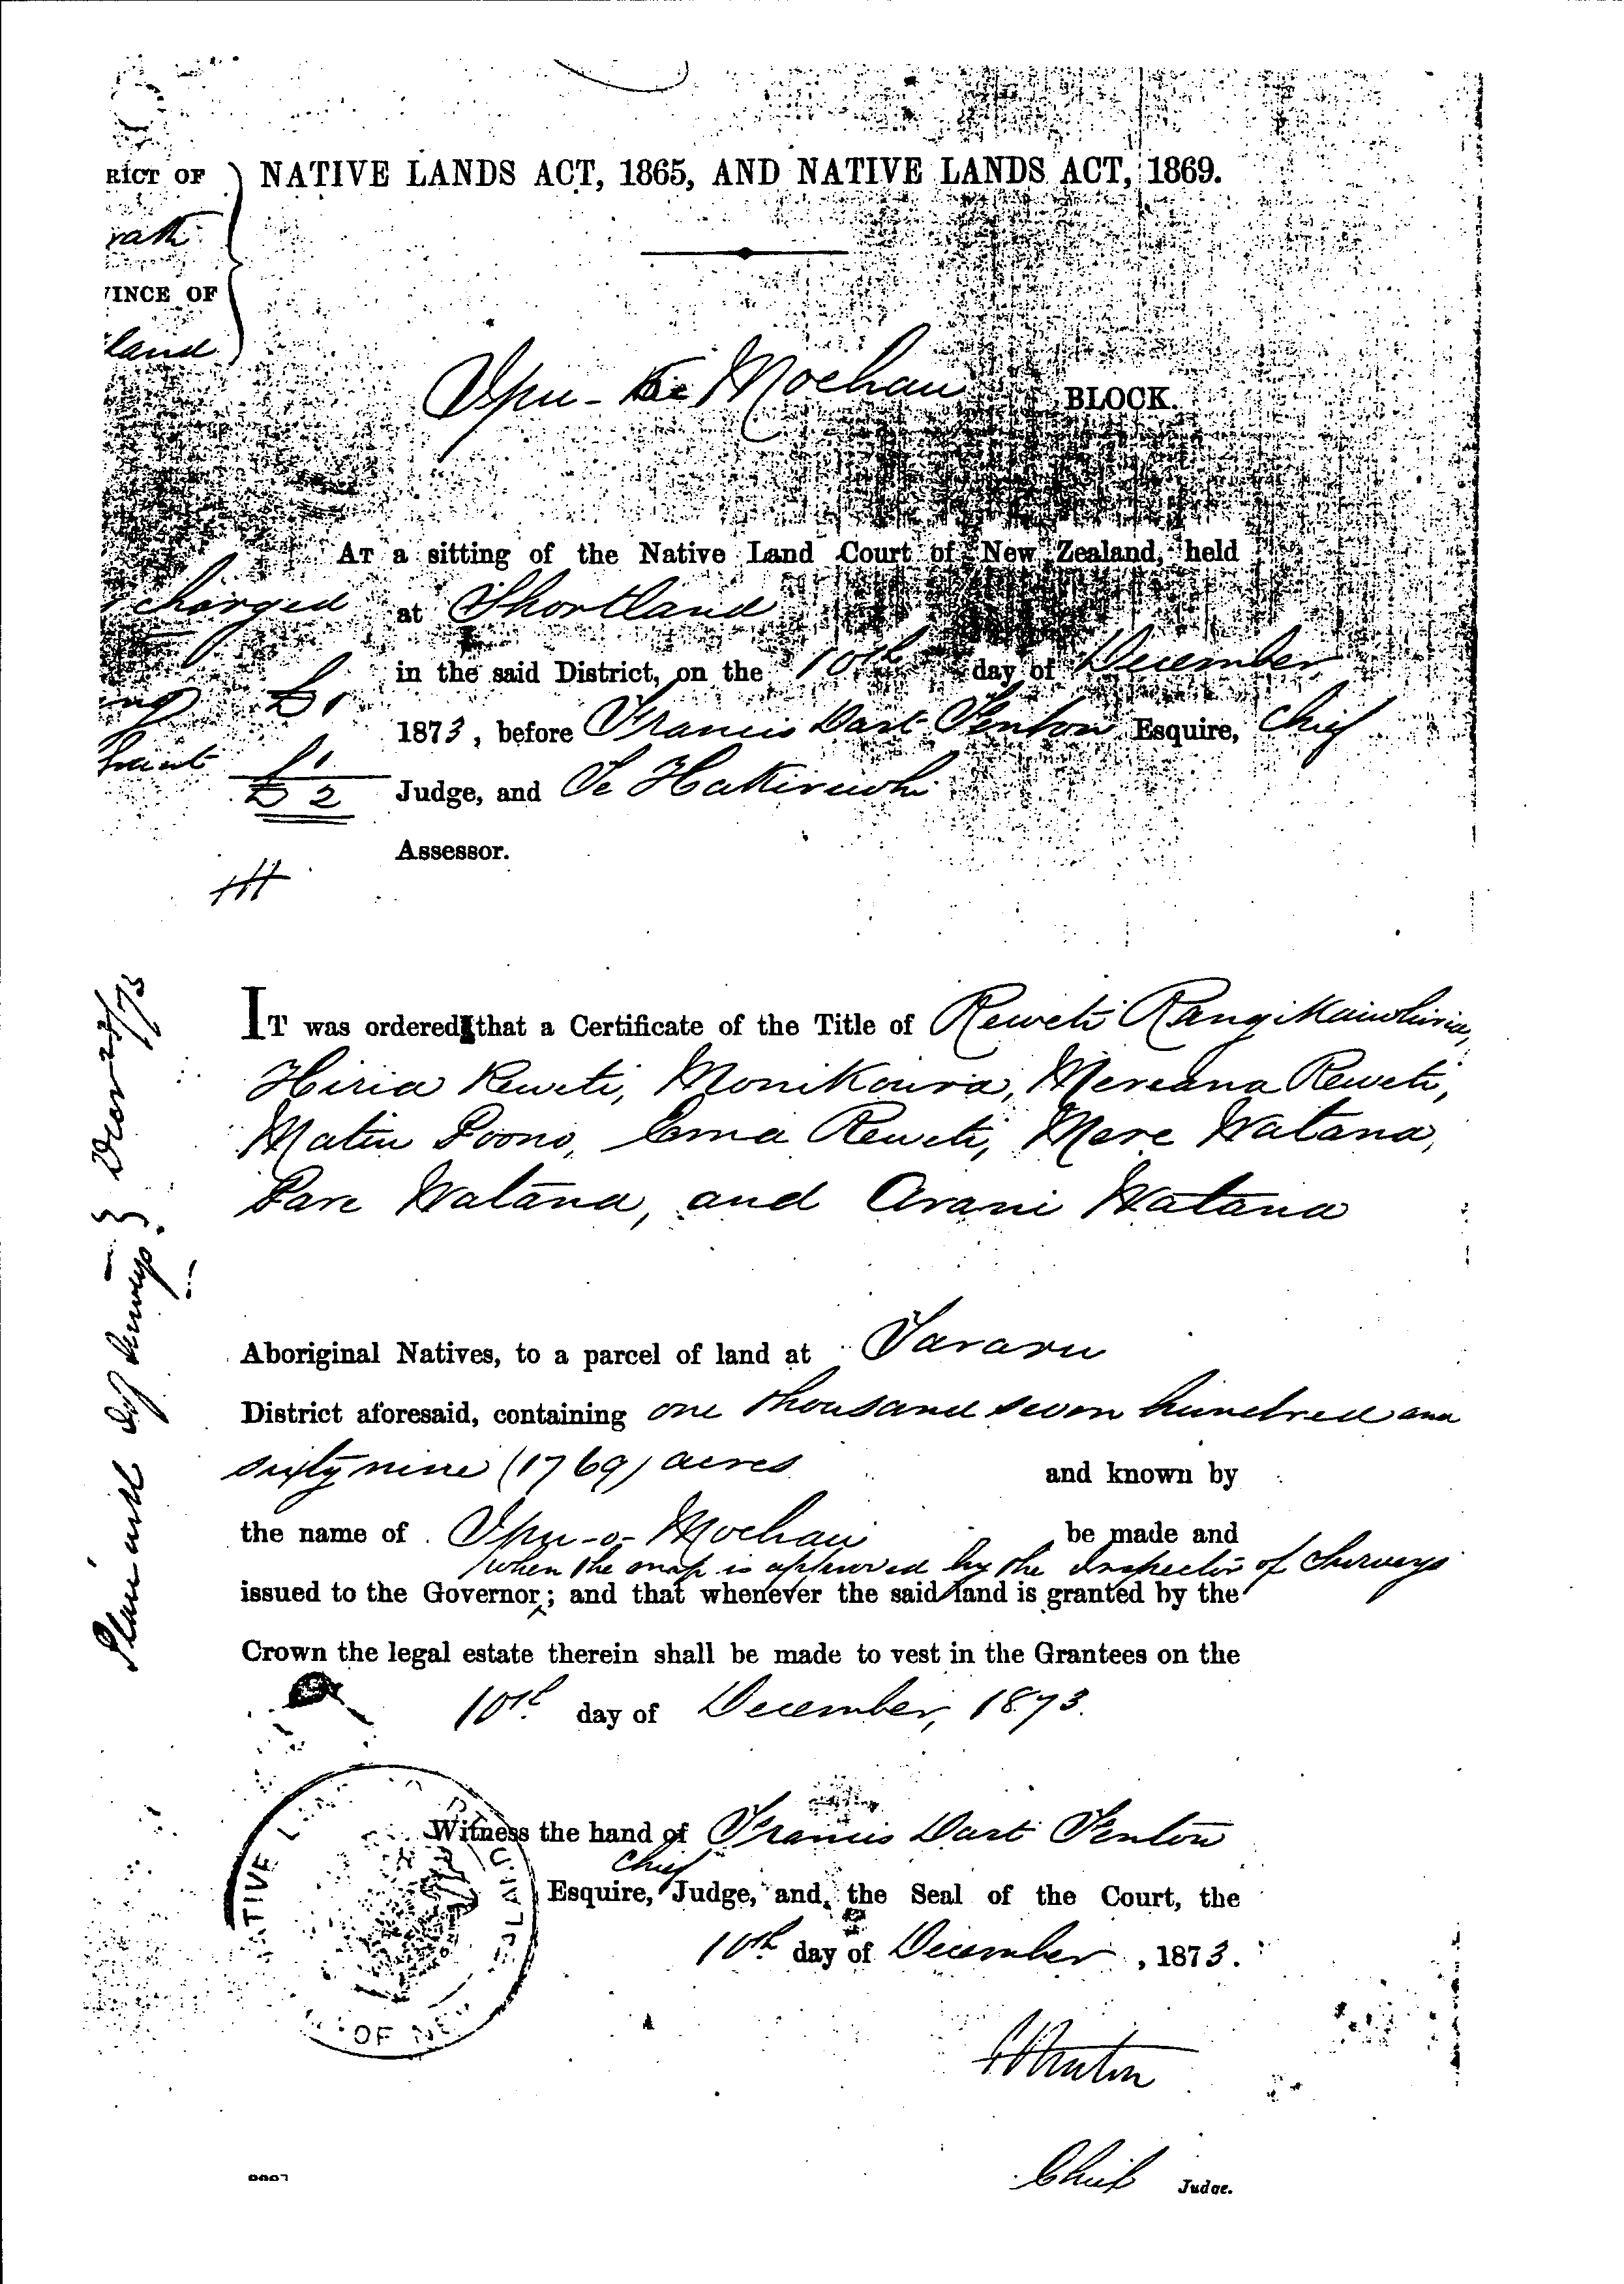 RICT OF
NATIVE LANDS ACT, 1865, AND NATIVE LANDS ACT, 1869.
VINCE OF
land
Ipu- Moehau BLOCK.
AT a sitting of the Native Land Court of New Zealand, held
charged
at Shortland
in the said District, on the 10th day of December
£1
1873, before Francis Dart Fenton Esquire, Chief
£1
Judge, and Te Hakiriwhi
£2
Assessor.
IT was ordered that a Certificate of the Title of Reweti Rangikaiwhiria,
Hiria Reweti, Monikoura, Mereana Reweti,
Matiu Poono, Ema Reweti, Mere Watana,
Pare Watana, and Arani Watana
Aboriginal Natives, to a parcel of land at Tararu
District aforesaid, containing one thousand seven hundred and
sixty nine (1769) acres and known by
the name of Ipu-o-Moehau be made and
when the map is approved by the Inspector of Surveys
issued to the Governor; and that whenever the said land is granted by the
Crown the legal estate therein shall be made to vest in the Grantees on the
10th day of December, 1873.
Witness the hand of Francis Dart Fenton
Chief
Esquire, Judge, and the Seal of the Court, the
10th day of December, 1873.
FDFenton
Chief Judge.
Plan with Insp of Surveys Decr 23/73
NATIVE LAND COURT OF NEW ZEALAND